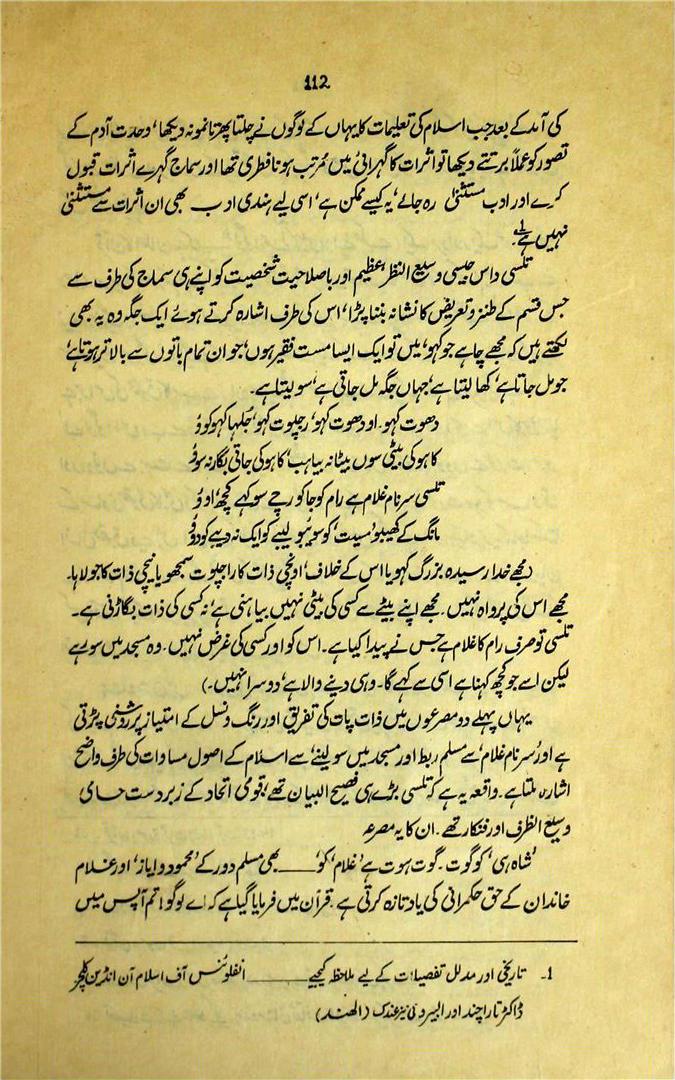 112
کی آمد کے بعد جب اسلام کی تعلیمات کا یہاں کے لوگوں نے چلتا پھرتا نمونہ دیکھا، وحدت آدم کے
تصور کو عملاً برتتے دیکھا تو اثرات کا گہرائی میں مُرتب ہونا فطری تھا اور سماج گہرے اثرات قبول
کرے اور ادب مستثنیٰ رہ جائے، یہ کیسے ممکن ہے، اسی لیے ہندی ادب بھی ان اثرات سے مستثنیٰ
نہیں ہے۔
تلسی داس جیسی وسیع النظر عظیم اور باصلاحیت شخصیت کو اپنے ہی سماج کی طرف سے
جس قسم کے طنز و تعریض کا نشانہ بننا پڑا، اس کی طرف اشارہ کرتے ہوئے ایک جگہ وہ یہ بھی
لکھتے ہیں کہ مجھے چاہے جو کہو، میں تو ایک ایسا مست فقیر ہوں، جو ان تمام باتوں سے بالاتر ہوتا ہے،
جو مل جاتا ہے، کھا لیتا ہے، جہاں جگہ مل جاتی ہے، سو لیتا ہے۔
دھوت کہو۔ اودھوت کہو، رجپوت کہو، جُلہا کہو کوؤ
کاہو کی بیٹی سوں بیٹا نہ بیاہب، کاہو کی جاتی بگار نہ سوؤ
تلسی سرنام غلام ہے رام کو جا کو رچے سو کہے کچھ، اوؤ
مانگ کے کھیبو، مسیت، کو سوئبو لیبے کو ایک نہ دیبے کو دوؤ
(مجھے خدا رسیدہ بزرگ کہو یا اس کے خلاف، اونچی ذات کا راجپوت سمجھو یا نیچی ذات کا جولاہا۔
مجھے اس کی پرواہ نہیں۔ مجھے اپنے بیٹے سے کسی کی بیٹی نہیں بیاہنی ہے، نہ کسی کی ذات بگاڑنی ہے۔
تلسی تو صرف رام کا غلام ہے جس نے پیدا کیا ہے۔ اس کو اور کسی کی غرض نہیں۔ وہ مسجد میں سو رہے
لیکن اسے جو کچھ کہنا ہے اسی سے کہے گا۔ وہی دینے والا ہے، دوسرا نہیں۔)
یہاں پہلے دو مصرعوں میں ذات پات کی تفریق اور رنگ و نسل کے امتیاز پر روشنی پڑتی
ہے اور 'سرنام غلام' سے مسلم ربط اور مسجد میں سو لینے، سے اسلام کے اصول مساوات کی طرف واضح
اشارہ ملتا ہے۔ واقعہ یہ ہے کہ تلسی بڑے ہی فصیح البیان تھے، قومی اتحاد کے زبردست حامی
وسیع الظرف اور فنکار تھے۔ ان کا یہ مصرعہ
'شاہ ہی' کو گوت۔ گوت ہوت ہے، غلام، کو' ـــــ بھی مسلم دور کے 'محمود و ایاز' اور غلام
خاندان کے حق حکمرانی کی یاد تازہ کرتی ہے۔ قرآن میں فرمایا گیا ہے کہ اے لوگو! تم آپس میں
1۔ تاریخی اور مدلل تفصیلات کے لیے ملاحظہ کیجیے ـــــ انفلوئنس آف اسلام آن انڈین کلچر
ڈاکٹر تارا چند اور البیرونی (الھند)